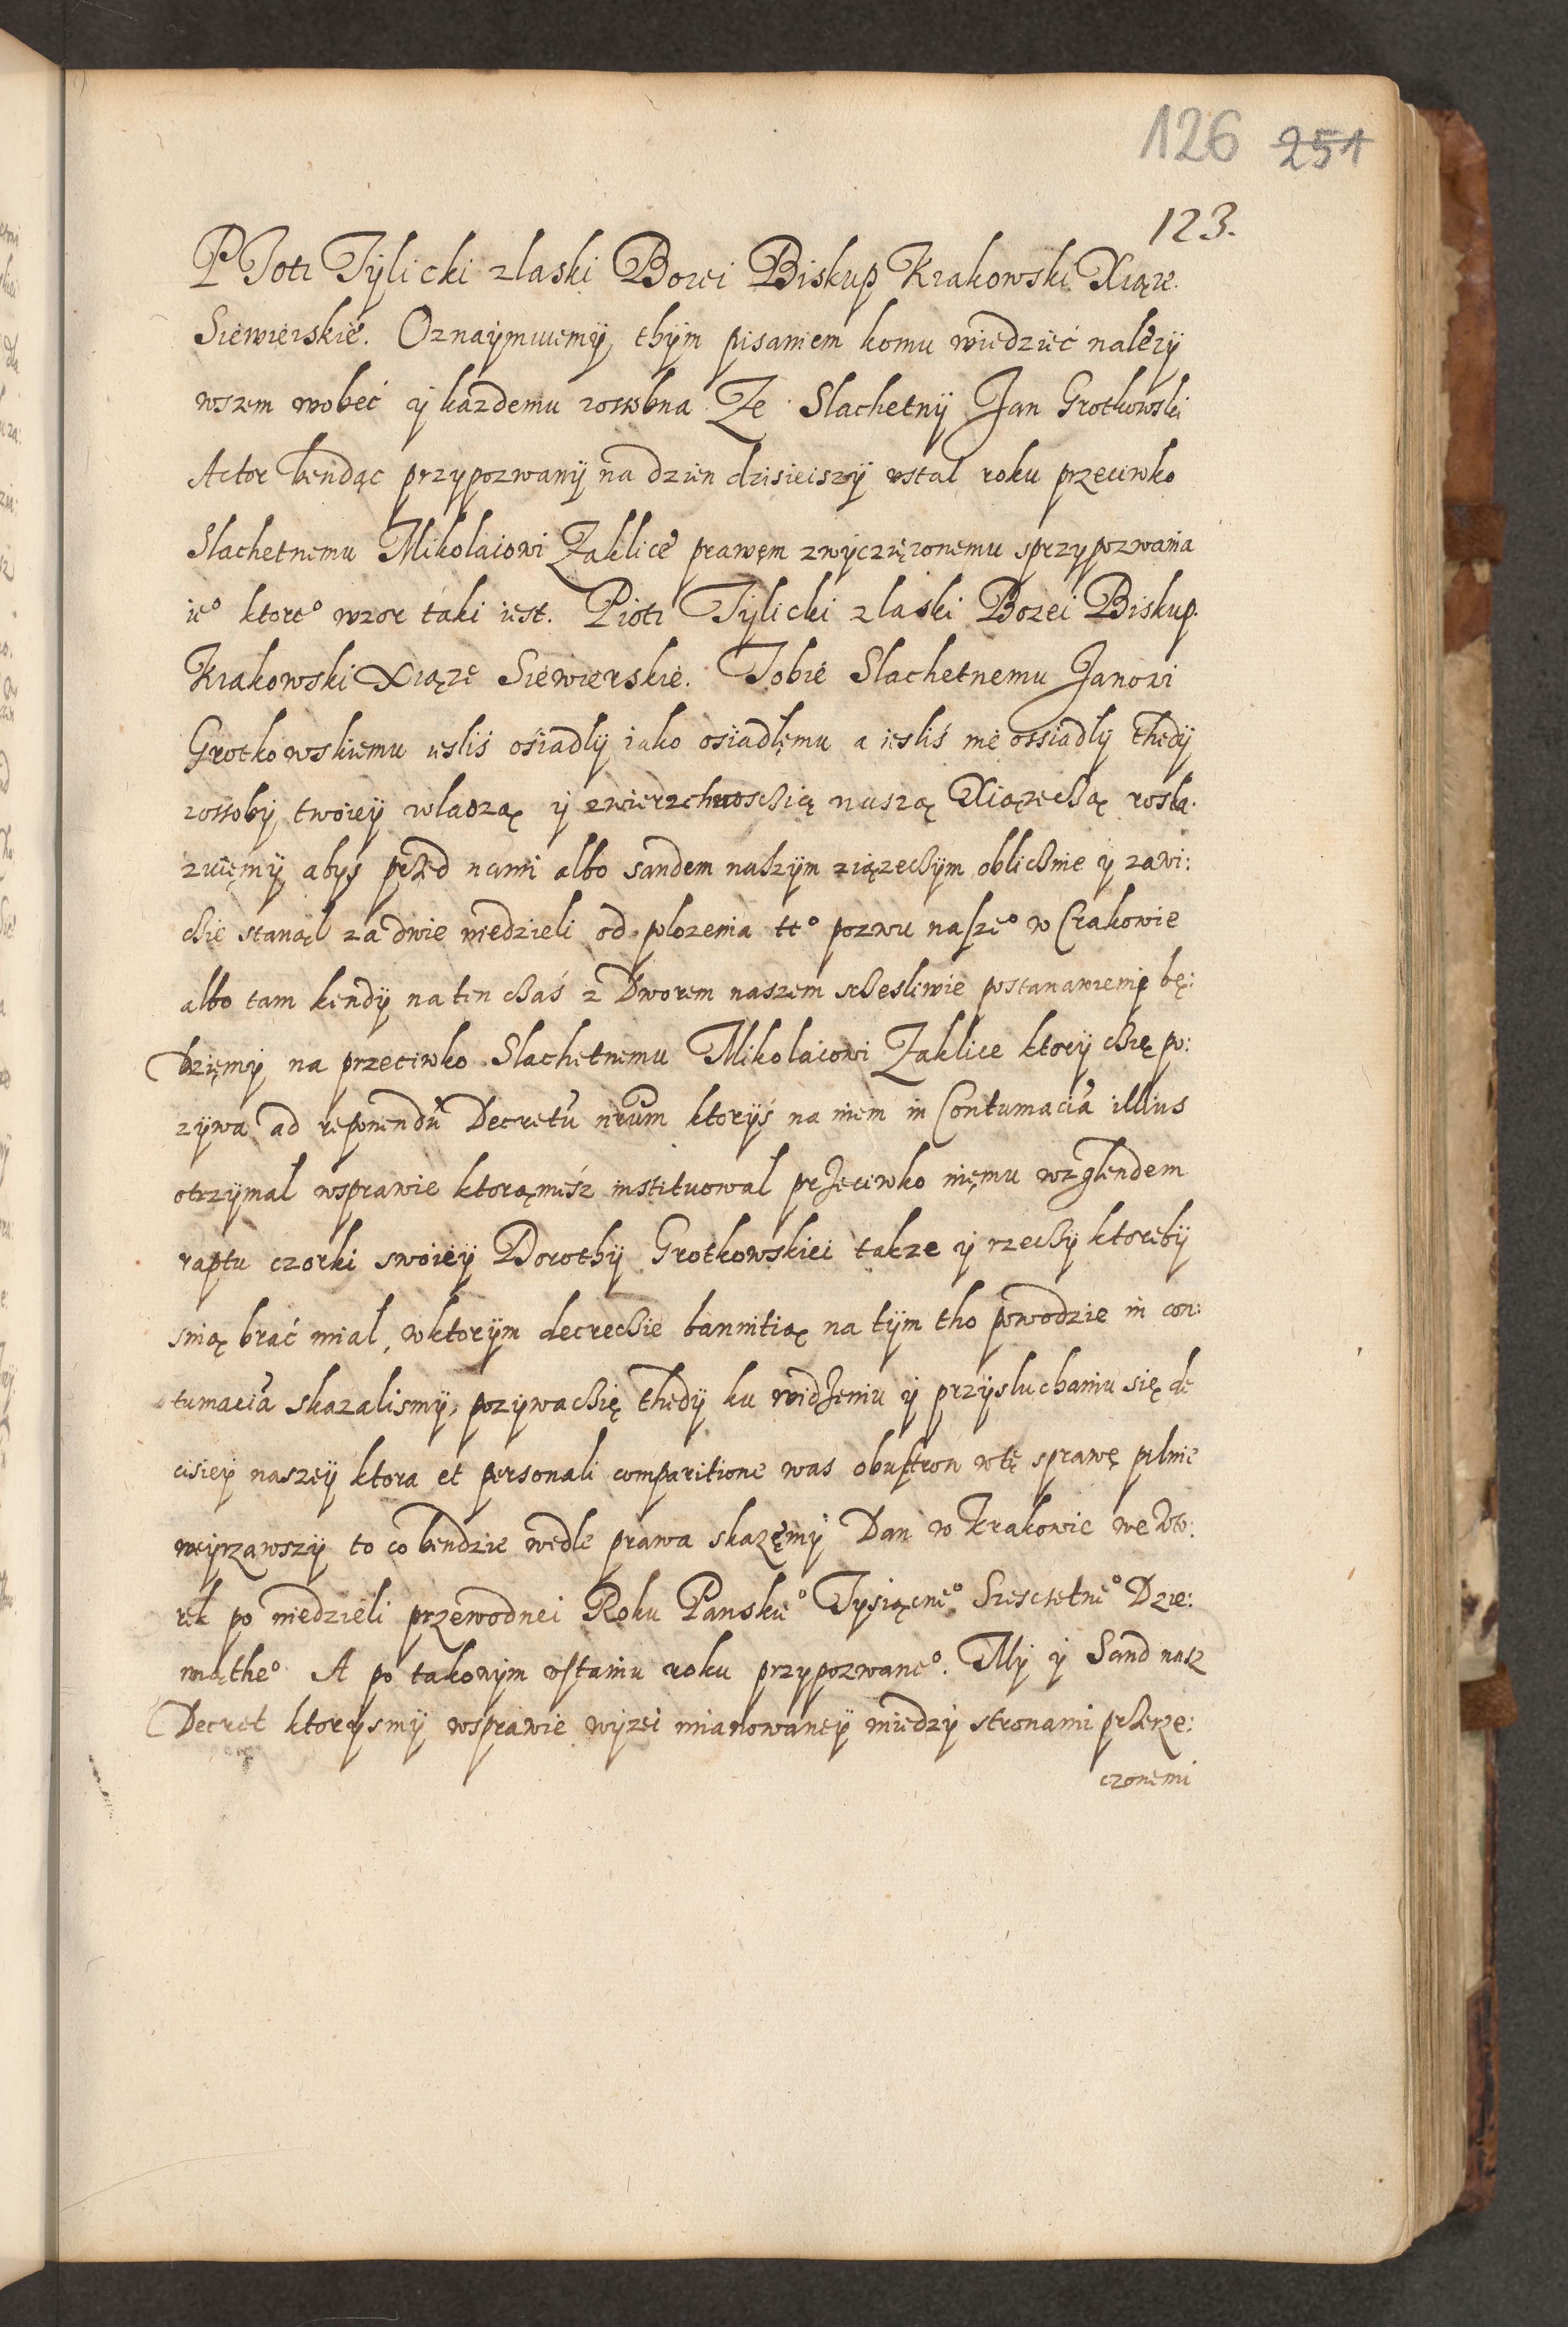 126 251
123.
PIotr Tÿlicki z laski Bozei Biskup Krakowski Xiąze
Siewierskie. Oznaÿmuiemÿ thÿm pisaniem komu wiedzieć należÿ
wszem wobeć ÿ kazdemu zossobna Ze Slachetnÿ Jan Grotkowski
Actor bendąc przypozwanÿ na dzien dzisieiszÿ vstal roku przeciwko
Slachetnemu Mikolaiowi Zaklice prawęm zwÿczięzonemu sprzypozwania
ie° ktore° wzor taki iest. Piotr Tÿlicki z laski Bozei Biskup
Krakowski Xiąze Siewierskie. Tobie Slachetnemu Janowi
Grotkowskiemu iesliś osiadlÿ iako osiadlęmu a iesliś nie ossiadlÿ thedÿ
zossobÿ twoieÿ wladzą ÿ zwierzchnoschią naszą Xiązechą roska:
zuięmÿ abÿs przed nami albo sandem naszÿm xiązechÿm oblichnie ÿ zawi:
chie stanąl za dwie niedzieli od polozenia tt° pozwu nasze° w Crakowie
albo tam kendÿ na ten chaś z Dworem naszem schesliwie postanawienię bę:
dzięmÿ na przeciwko Slachetnemu Mikolaiowi Zaklice ktorÿ chię po:
zÿwa ad reponendũ Decretũ nrũm ktorÿś na niem in Contumaciã illius
otrzÿmal wsprawie ktorąmeśz instituowal przeciwko nięmu wzglendem
raptu czorki swoieÿ Dorothÿ Grotkowskiei takze ÿ rzechÿ ktorebÿ
snią brać mial, wktorÿm decrechie bannitią na tÿm tho powodzie in con:
tumaciã skazalismÿ, pozÿwachię thedÿ ku widzeniu ÿ przÿsluchaniu się de
cisieÿ naszeÿ ktora et personali comparitione was obustron wtę sprawę pilnie
weÿrzawszÿ to co bendzie wedle prawa skazęmÿ Dan w Krakowie we wto:
rek po niedzieli przewodnei Roku Panskie° Tysiącne° Sescsetne° Dzie:
wiąthe° A po takowÿm vstaniu roku przypozwane°. Mÿ ÿ Sand nasz
Decret ktorysmÿ wsprawie wÿzei mianowaneÿ miedzÿ stronami przerze:
czonemi